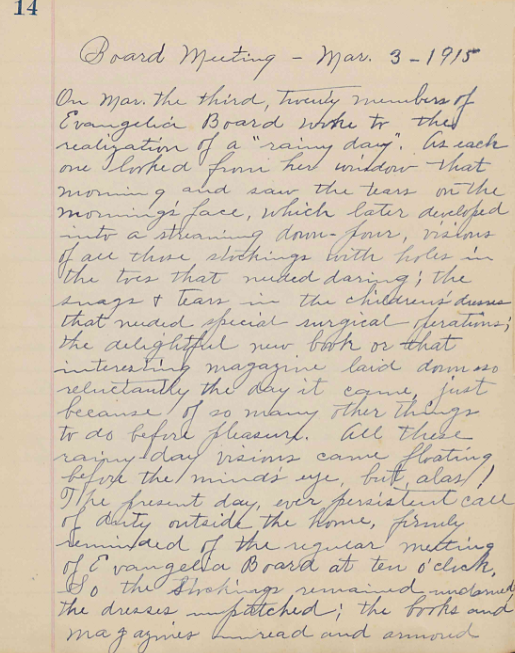 14
Board Meeting - Mar. 3 - 1915
On Mar. the third, twenty members of
Evangelia Board woke to the
realization of a "rainy day". As each
one looked from her window that
morning and saw the tears on the
morning's face, which later developed
into a streaming down-pour, visions
of all those stockings with holes in
the toes that needed daring; the
snags & tears in the children's dresses
that needed special surgical operations;
the delightful new book or that
interesting magazine laid down so
reluctantly the day it came, just
because of so many other things
to do before pleasure. All these
rainy-day visions came floating
before the mind's eye, but, alas!
The present day, ever persistent call
of duty outside the home, firmly
reminded of the regular meeting
of Evangelia Board at ten o'clock.
So the stockings remained undarned,
the dresses unpatched; the books and
magazines unread and armored